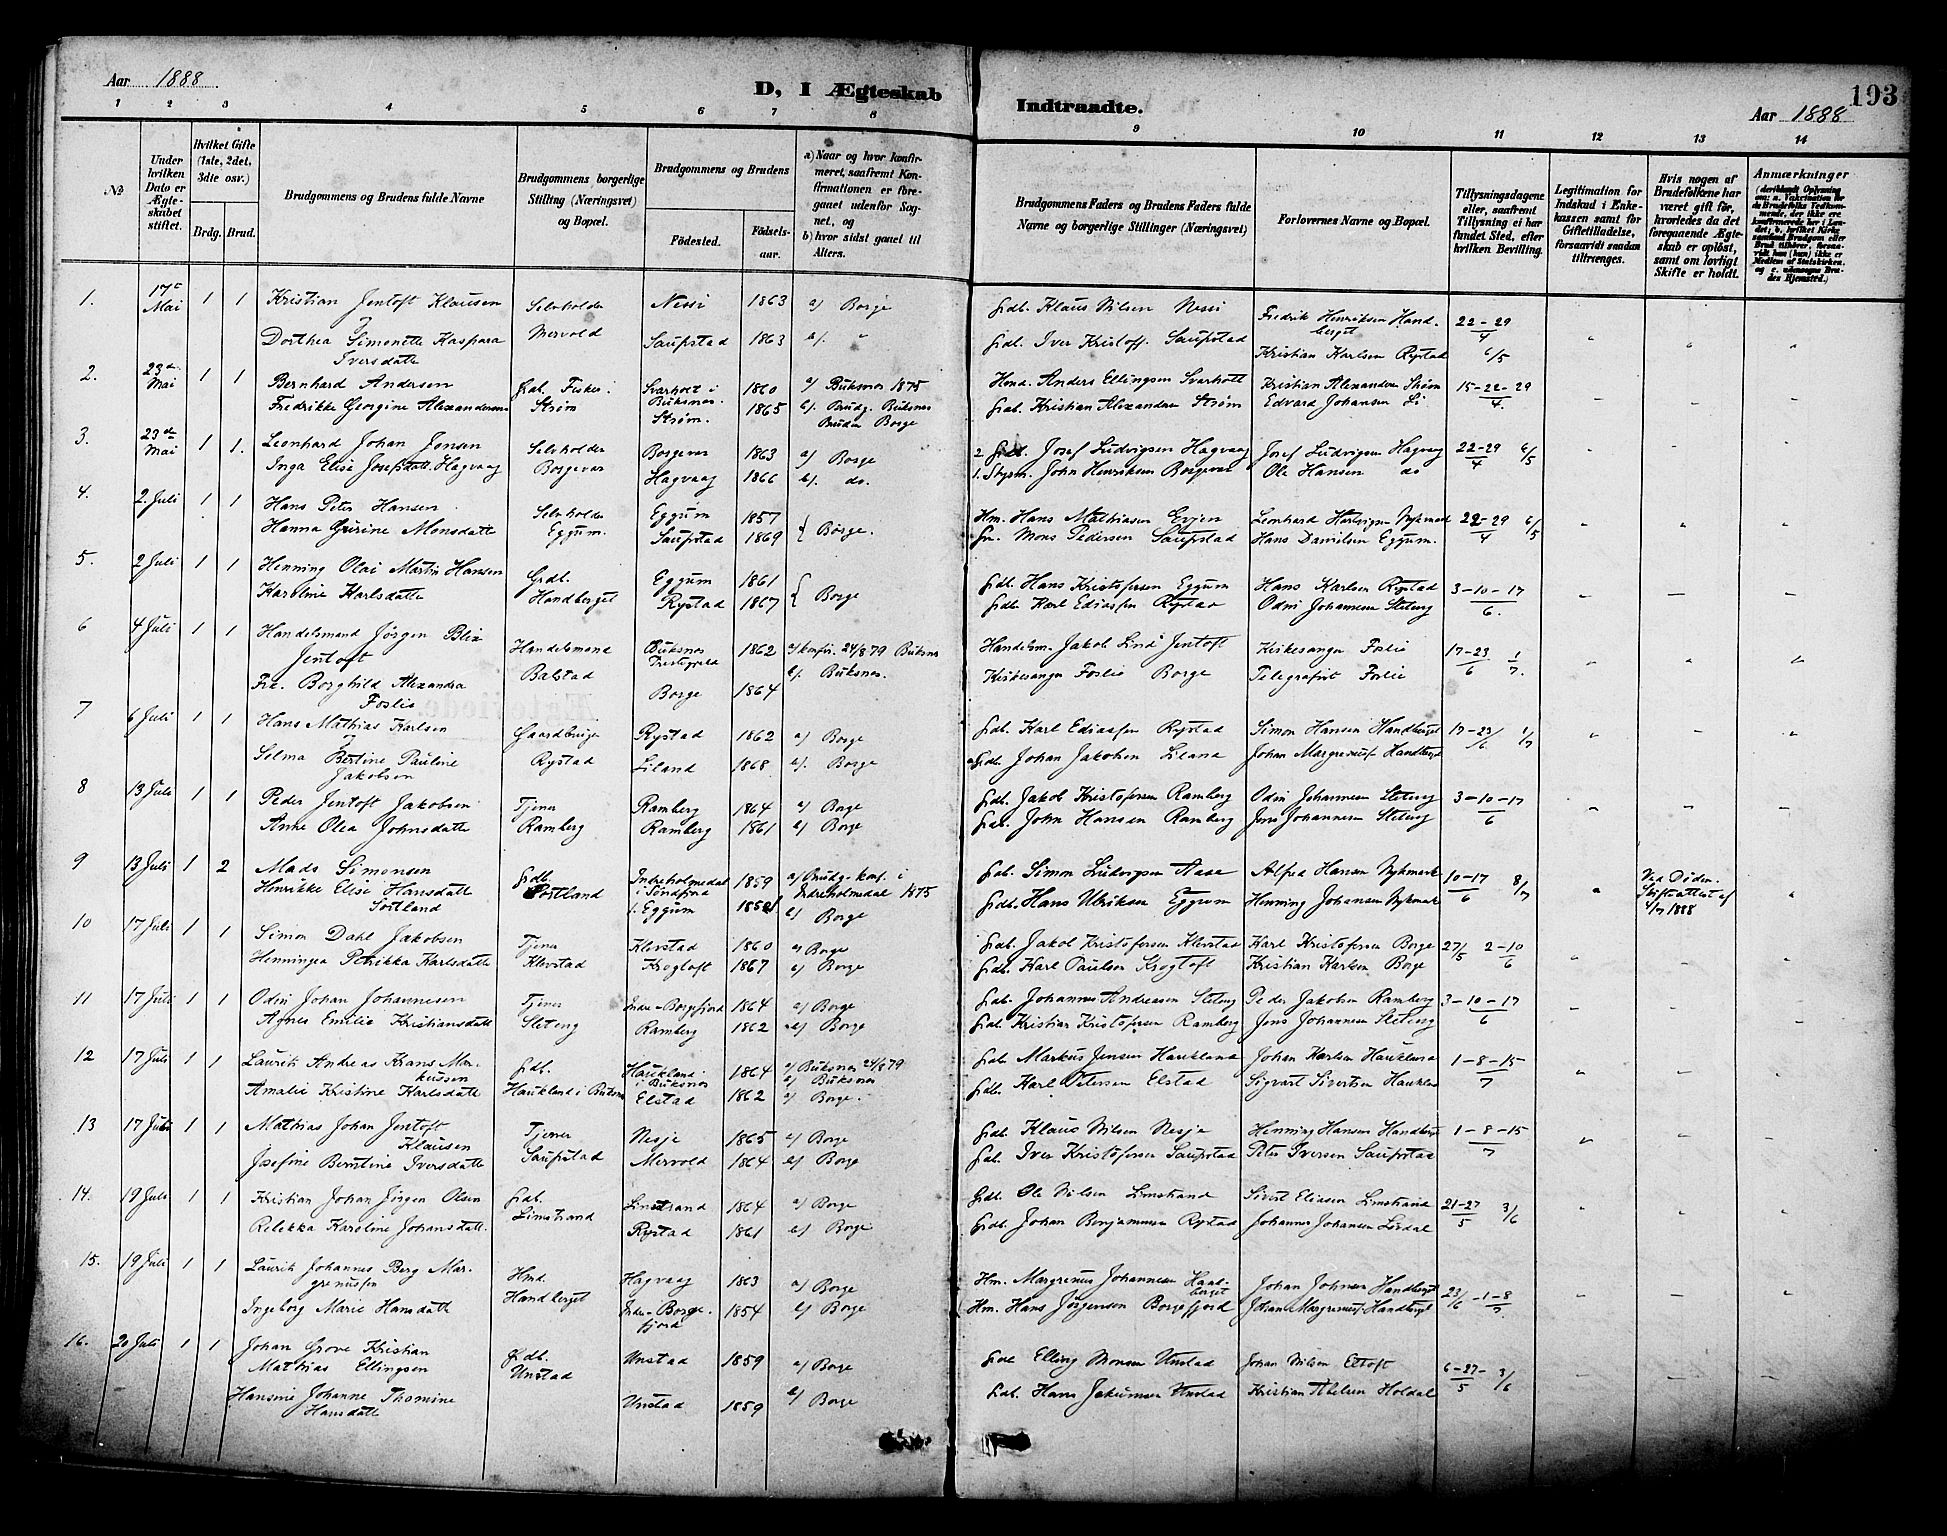 Aar 1888
D, I Ægteskab
Indtraadte.
193
Aar 1888
1 2 3 4 5 6 7 8 9 10 11 12 13 14
№
Under hvilken Dato er Ægteskabet stiftet.
Hvilket Gifte (1ste, 2det, 3die osv.)
Brdg. Brud.
Brudgommens og Brudens fulde Navne
Brudgommens borgerlige Stilling (Næringsvei) og Bopæl.
Brudgommens og Brudens
Fødested.
Fødselsaar.
a) Naar og hvor konfirmeret, saafremt Konfirmationen er foregaaet udenfor Sognet, og
b) hvor sidst gaaet til Alters.
Brudgommens Faders og Brudens Faders fulde Navne og borgerlige Stillinger (Næringsvei)
Forlovernes Navne og Bopæl.
Tillysningsdagene eller, saafremt Tillysning ei har fundet Sted, efter hvilken Bevilling.
Legitimation for Indskud i Enkekassen samt for Giftetilladelse, forsaavidt saadan tiltrænges.
Hvis nogen af Brudefolkene har været gift før, hvorledes da det foregaaende Ægteskab er opløst, samt om lovligt Skifte er holdt.
Anmærkninger
1. 17de Mai 1 1 Kristian Jentoft Klausen Selvholder Nessi 1863 a) Borge Gdb. Klaus Nilsen Nessi Fredrik Henriksen Handberget 22-29/4
Dorthea Simonette Kaspara Iversdatte Mervold Saupstad 1863 b). " Gdb. Iver Kristoff. Saupstad Kristian Karlsen Rystad 6/5
2. 23de Mai 1 1 Bernhard Andersen Gdb. Fisker i Svarholt i Buksnes 1860 a) Buksnes 1875 Hmd. Anders Ellingsen Svarholt Kristian Alexandersen Strøm 15-22-29/4
Fredrikke Georgine Alexandersen Strøm Strøm. 1865 b). Brudg. Buksnes Bruden Borge Gdb. Kristian Alexandersen Strøm Edvard Johansen Li
3. 23de Mai 1 1. Leonhard Johan Jensen Selvholder Borgevær 1863 a) Borge 2 Gdb. Josef Ludvigsen Hagvaag Josef Ludvigsen Hagvaag 22-29/4 6/5
Inga Elise Josefsdatt. Hagvaag Borgevær Hagvaag 1866 b). do. 1. John Henriksen Borgevær Ole Hansen do
4. 2. Juli 1 1 Hans Peter Hansen Selvholder Eggum 1857 Borge. Hm. Hans Mathiasen Evjen Leonhard Hartvigsen Nykmark 22-29/4 6/5
Hanna Gurine Monsdatte Eggum. Saupstad 1869 Mons Pedersen Saupstad Hans Danielsen Eggum.
5. 2 Juli 1 1 Henning Olai Martin Hansen Grdb. Eggum 1861 Borge Gdb. Hans Kristofersen Eggum Hans Karlsen Rystad 3-10-17/6.
Karoline Karlsdatte Handberget Rystad 1867 Gdb. Karl Ediassen Rystad Odin Johannesen Sleteng
6 4 Juli 1 1 Handelsmand Jørgen Blix Jentoft Handelsmand Buksnes Præstegjeld 1862 a) konfir. 24/8 79 Buksnes Handelsm. Jakob Lind Jentoft Kirkesanger Foslie 17-23/6 1/7.
Frk. Borghild Alexandra Foslie Balstad Borge 1864 b). Buksnes. Kirkesanger Foslie Borge Telegrafist Foslie
7 6 Juli 1 1 Hans Mathias Karlsen Gaardbruger Rystad 1862 a) Borge Gdb. Karl Ediassen Rystad Simon Hansen Handberget 17-23/6 1/7
Selma Bertine Pauline Jakobsen Rystad Liland 1868 b). Borge Gdb. Johan Jakobsen Liland Johan Margrenius. Handberget
8 13 Juli 1 1 Peder Jentoft Jakobsen Tjener Ramberg 1864 a) Borge Gdb. Jakob Kristofersen Ramberg Odin Johannesen Sleteng 3-10-17/6
Anne Olea Johnsdatte Ramberg Ramberg 1861 b) Borge Gdb. John Hansen Ramberg Jens Johannesen Sleteng
9 13 Juli 1 2 Mads Simonsen Gdb. Indreholmedal i Søndfjord 1859 a) Brudg. konf. i Indreholmedal 1875 Gdb. Simon Ludvigsen Aase Alfred Hansen Nykmark 10-17/6 8/7 Ved Døden. Skifteattest af 4/7 1888
Henrikke Elise Hansdatte Sortland Sortland Eggum b) Borge Gdb. Hans Ulriksen Eggum Henning Johansen Nykmark
10 17 Juli 1 1 Simon Dahl Jakobsen Tjener Klevstad 1860 a) Borge Gdb. Jakob Kristofersen Klevstad Karl Kristofersen Borge 27/5 2-10/6
Henningea Petrikka Karlsdatte Klevstad Krogtoft 1867 b) Borge Gdb. Karl Paulsen Krogtoft Kristian Karlsen Borge
11 17 Juli 1 1 Odin Johan Johannesen Tjener Indre-Borgefjord 1864 a) Borge Gdb. Johannes Andreasen Sleteng Peder Jakobsen Ramberg 3-10-17/6
Agnes Emilie Kristiansdatt Sleteng Ramberg 1862 b) Borge Gdb. Kristian Kristofersen Ramberg Jens Johannesen Sleteng
12 17 Juli 1 1 Laurits Andreas Krans Markussen Gdb. Haukland i Buksnes 1864 a) Buksnes 24/8 79 b) Buksnes Gdb. Markus Jensen Haukland Johan Karlsen Haukland 1-8-15/7
Amalie Kristine Karlsdatte Haukland i Buksnes Elstad 1862 a) Borge. Gdb. Karl Petersen Elstad Sigvart Sivertsen Haukland
13 17 Juli 1 1 Mathias Johan Jentoft Klausen Tjener Nesje 1865 a) Borge Gdb. Klaus Nilsen Nesje Henning Hansen Handberget 1-8-15/7
Josefine Berntine Iversdatte Saupstad Mervold 1864 b) Borge Gdb. Iver Kristofersen Saupstad Peter Iversen Saupstad
14. 19 Juli 1 1 Kristian Johan Jørgen Olsen Gdb. Limstrand 1864 a) Borge Gdb. Ole Nilsen Limstrand Sivert Eliasen Limstrand 21-27/5 3/6
Rebekka Karoline Johansdatt. Limstrand Rystad 1861 b) Borge Gdb. Johan Benjaminsen Rystad Johannes Johansen Lirdal
15. 19 Juli 1 1 Laurits Johannes Berg Margrenussen Hmd. Hagvaag 1863 a) Borge Hm. Margrenus Johannesen Handberget Johan Johnsen Handberget 23/6-1-8/7
Ingeborg Marie Hansdatte Handberget Indre-Borgefjord 1854 b) Borge Hm. Hans Jørgensen Borgefjord Johan Margrenius. Handberget
16. 20 Juli 1 1 Johan Grove Kristian Mathias Ellingsen Gdb. Unstad 1859 a) Borge Gdb Elling Monsen Unstad Johan Nilsen Eltoft 6-27-/5 3/6
Hansine Johanne Thomine Hansdatte Unstad Unstad 1859 b) Borge Gdb. Hans Jakobsen Unstad Kristian Abelsen Holdal